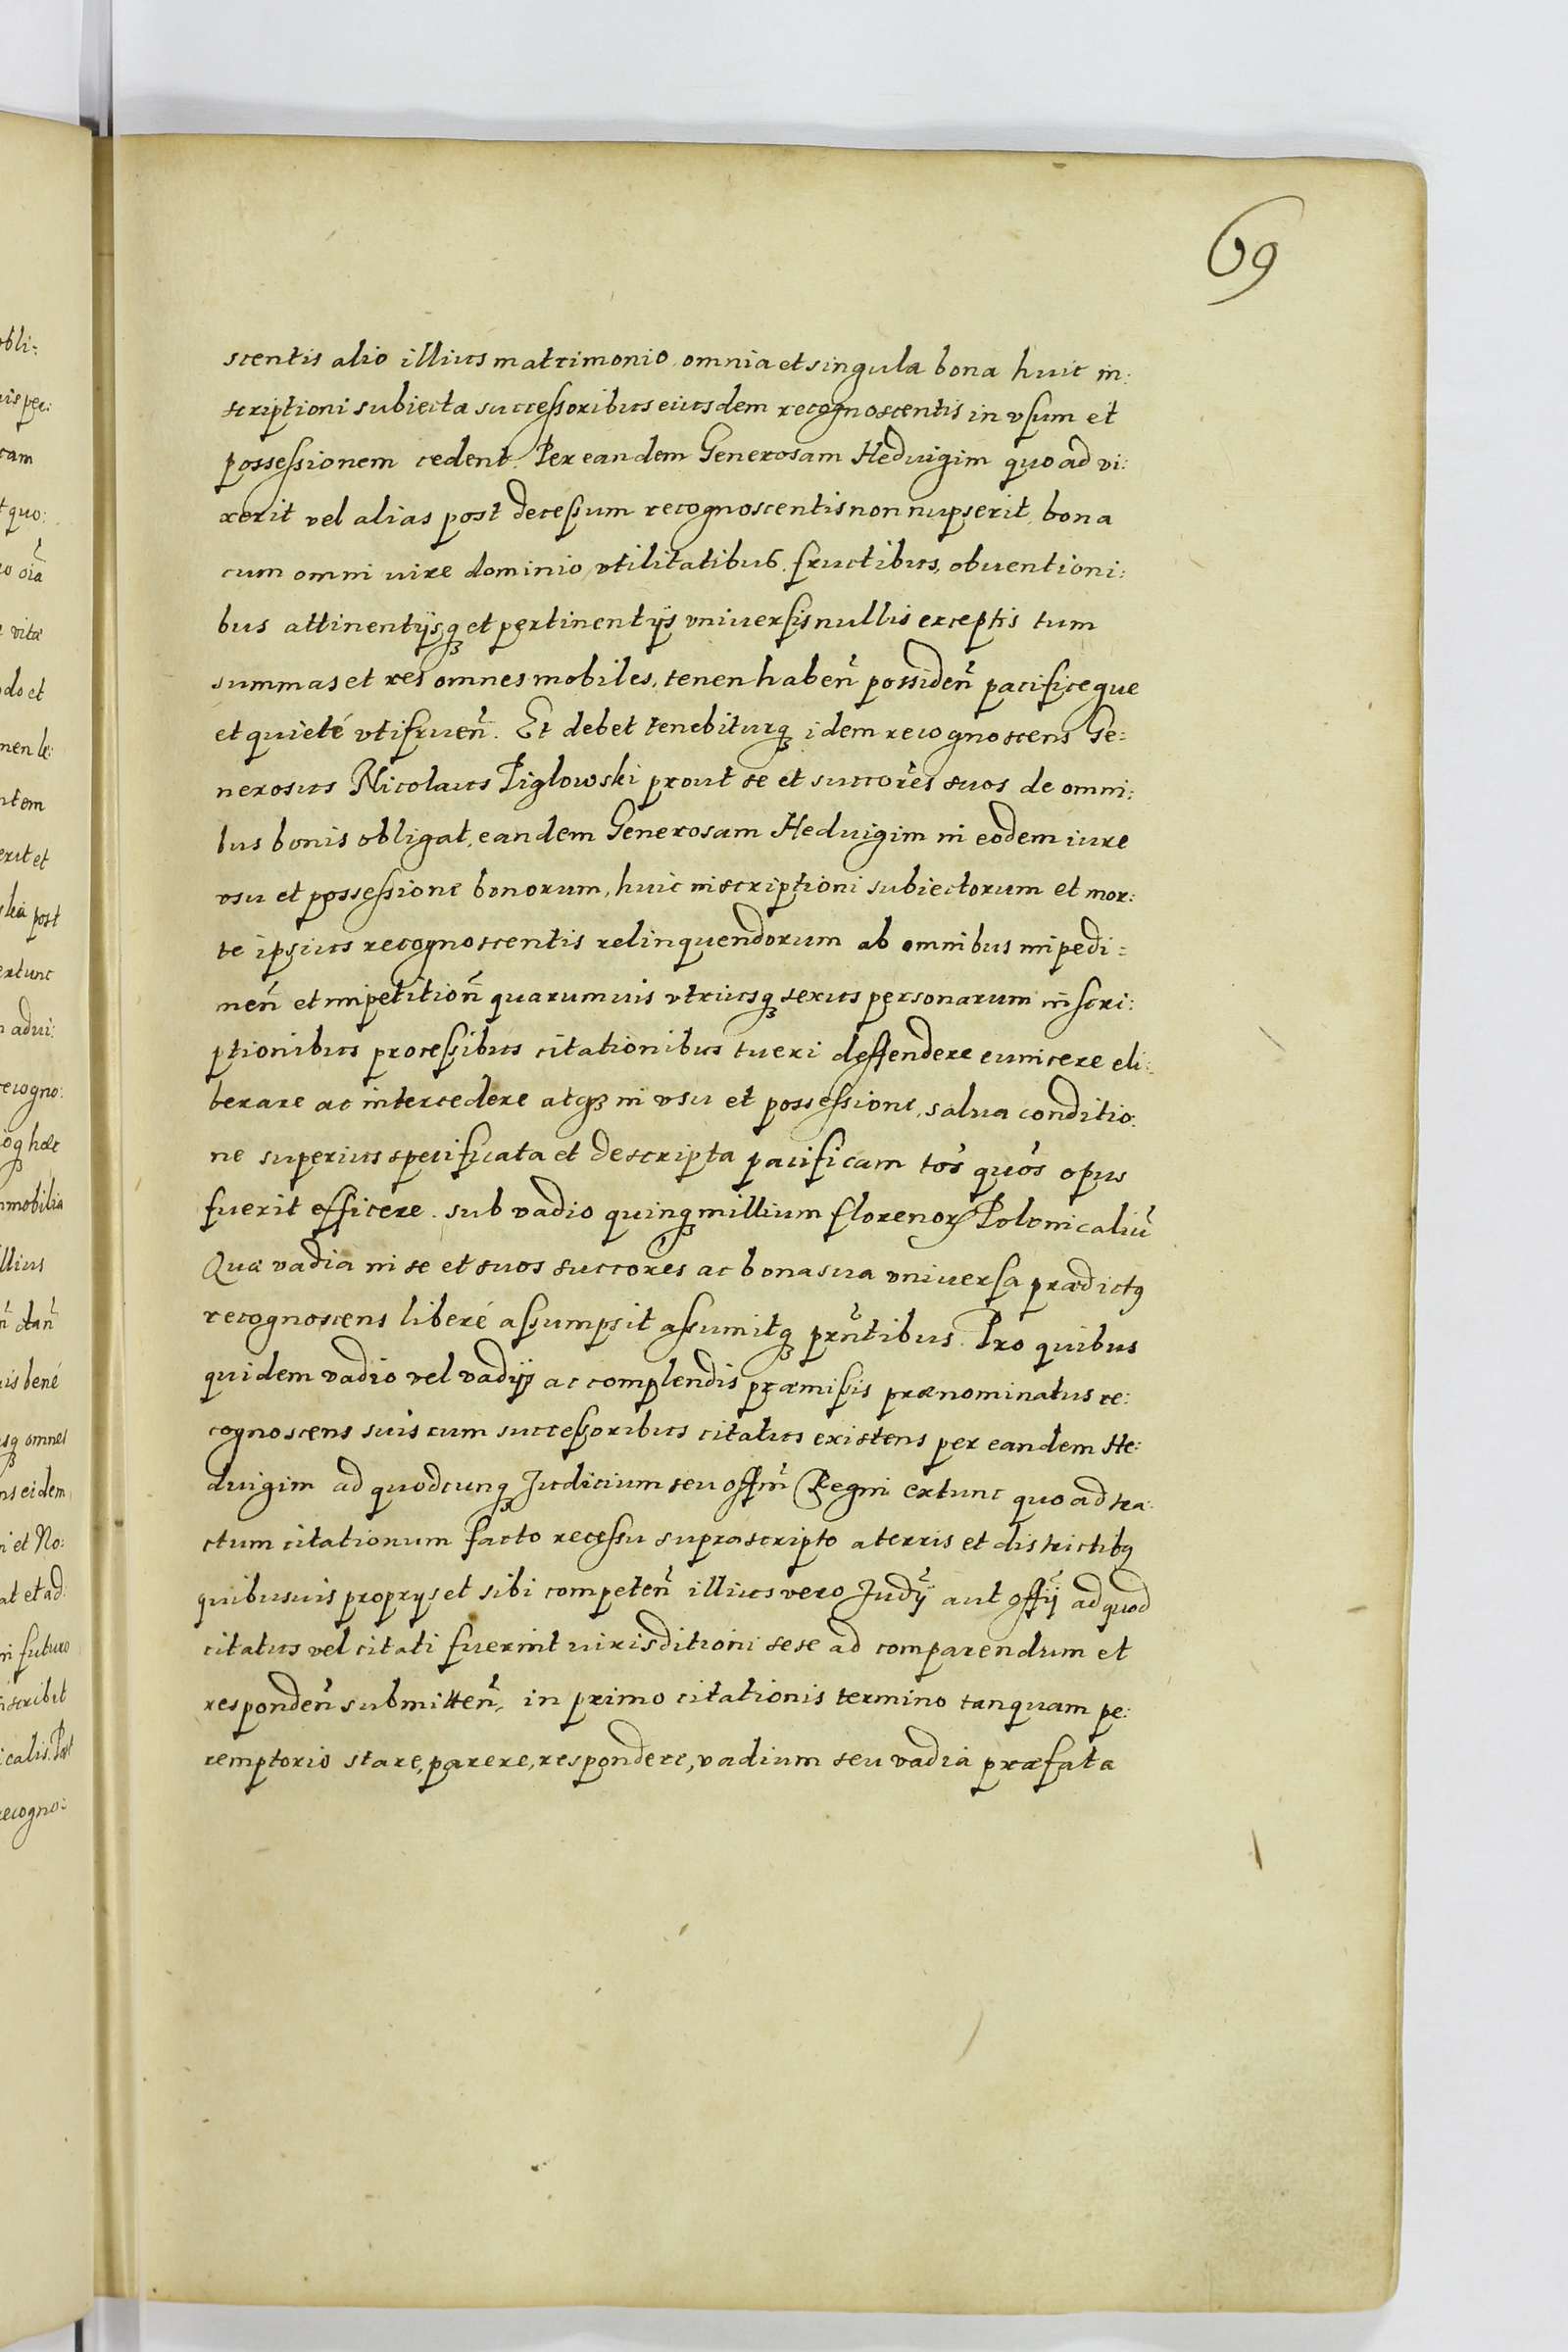 69
scentis alio illius matrimonio omnia et singula bona huic in:
scriptioni subiecta successoribus eiusdem recognoscentis in vsum et
possessionem cedent. Per eandem Generosam Heduigim quo ad vi:
xerit vel alias post decessum recognoscentis non nupserit, bona
cum omni iure dominio, vtilitatibus, fructibus, obuentioni:
bus attinentijsq₃ et pertinentijs vniuersis nullis exceptis tum
summas et res omnes mobiles, tenen haben̄ possiden̄ pacificeque
et quieté vtifruen̄. Et debet tenebiturq₃ idem recognoscens Ge:
nerosus Nicolaus Piglowski prout se et succor̄es suos de omni:
bus bonis obligat, eandem Generosam Heduigim in eodem iure
vsu et possessione bonorum, huic inscriptioni subiectorum et mor:
te ipsius recognoscentis relinquendorum ab omnibus impedi:
men̄ et impetition̄ quarumuis vtriusq₃ sexus personarum inscri:
ptionibus processibus citationibus tueri deffendere euincere eli:
berare ac intercedere atq₃ in vsu et possessione, salua conditio:
ne superius specificata et descripta pacificam to's quo's opus
fuerit efficere. sub vadio quinq₃ millium florenorꝝ Polonicaliū
Quæ vadia in se et suos succor̄es ac bona sua vniuersa prædictꝰ
recognoscens liberé assumpsit assumitq₃ prn̄tibus. Pro quibus
quidem vadio vel vadijs ac complendis præmissis prænominatus re:
cognoscens suis cum successoribus citatus existens per eandem He:
duigim ad quodcunq₃ Judicium seu offm̄ Regni extunc quo ad tra:
ctum citationum facto recessu suprascripto a terris et districtibꝰ
quibusuis proprijs et sibi competen̄ illius vero Judȳ aut offȳ ad quod
citatus vel citati fuerint iurisditioni sese ad comparendum et
responden̄ submitten̄, in primo citationis termino tanquam pe:
remptorio stare, parere, respondere, vadium seu vadia præfata
obli:
tam
quo:
oīa
vitæ
do et
et
post
extunc
adui:
recogno:
mobilia
illius
bené
omnes
eidem
et No:
at et ad:
in futuro
inscribit
icalis. Post
recogno: